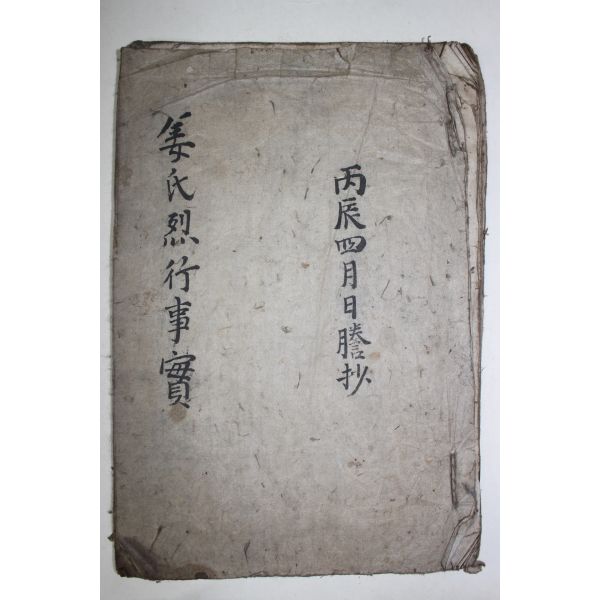 丙辰四月日謄抄
姜氏烈行事實